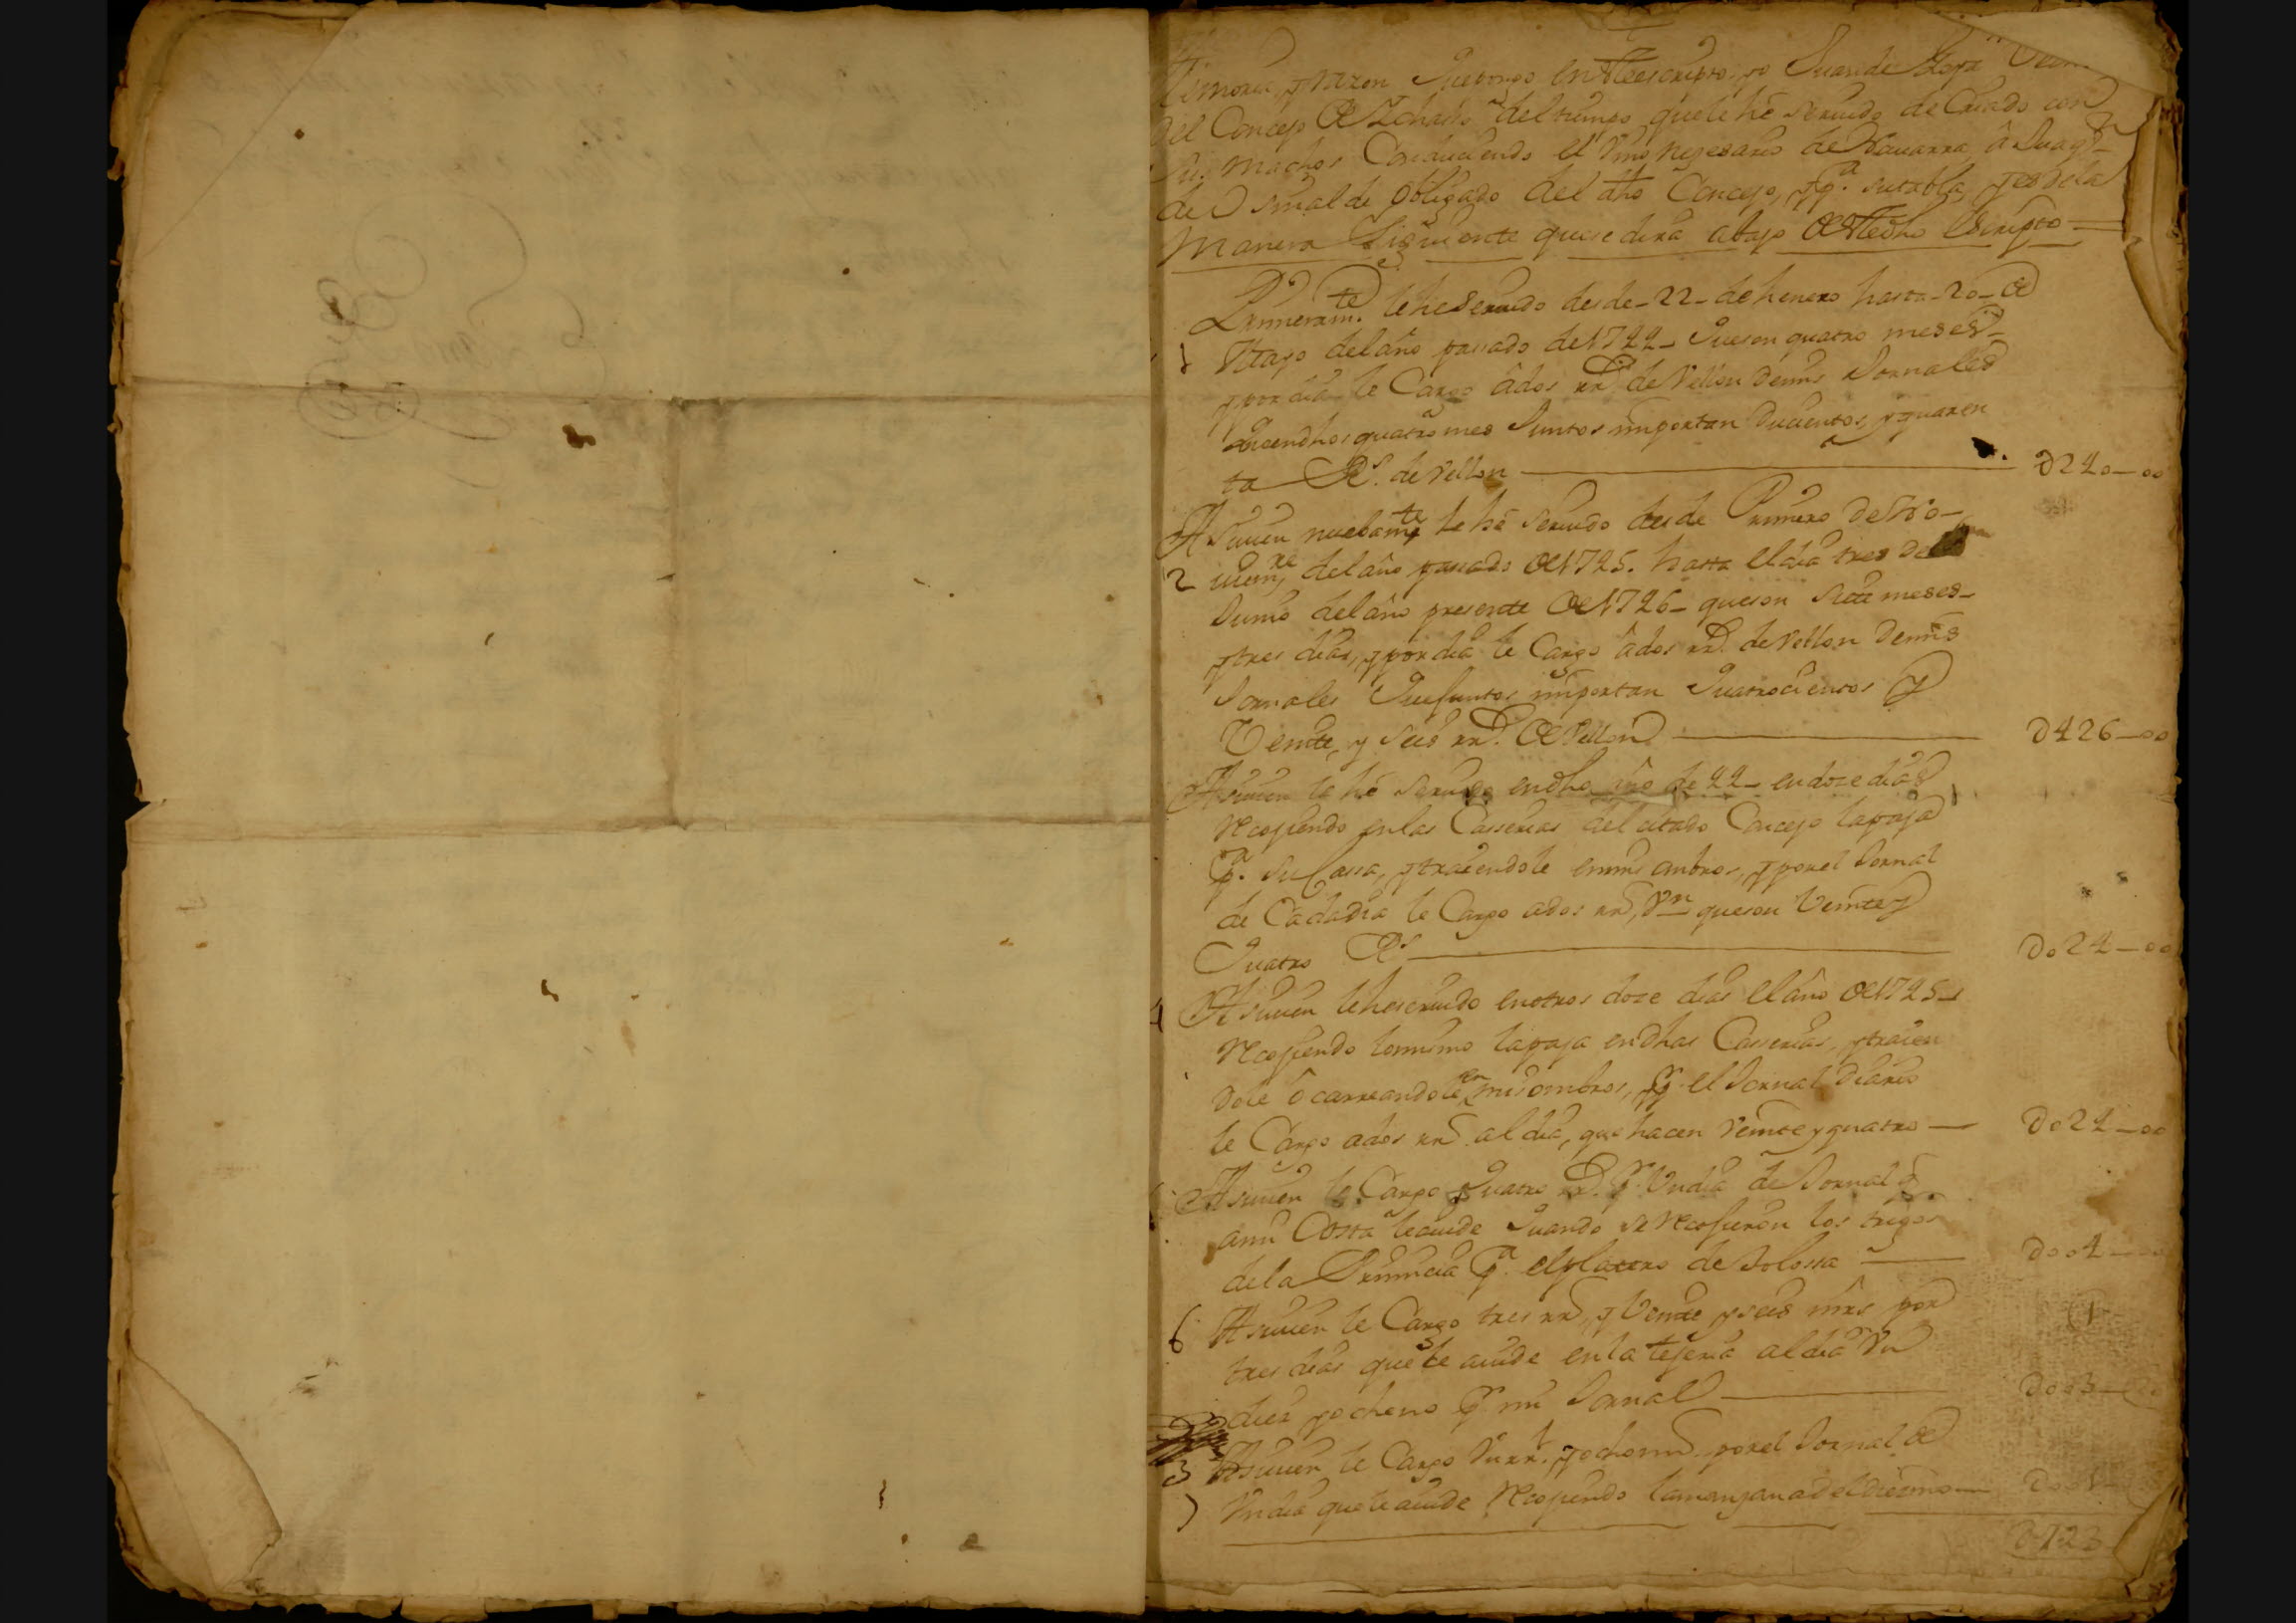 Memoria, y razon que pongo en este escripto, yo Juan de
del Concejo de Ichaso del tiempo que le hê seruido de Criado con
sus machos Conduciendo el Vino nezesario de Nauarra â Juan
de obligado del dho Concejo, y pª. su tabla, y es dela
Manera Siguiente que se dirà abajo de este dho escripto
Primeramte. le he seruido desde - 22 - de henero hasta - 20 - de
1 Mayo del año passado de 1724 - que son quatro meses
y por dia le Cargo âdos rrs. de Vellon de mis Jornales
que en dhos quatro mes Juntos importan Ducientos, y quaren
ta Rs. de Vellon D240-00
Asiuien nuebamte le hê seruido desde Primero de No-
2 uiemre, del año passado de 1725. hasta el dia tres de
Junio del año presente de 1726 - que son siete meses -
y tres dias, y por dia le Cargo âdos rrs. de Vellon de mis
Jornales que Juntos importan quatrocientos y
Veinte, y seis rrs. de Vellon D426-00
Asiuien le hê seruido en dho año de 24 - en doze dias
recojiendo en las Casserias del citado Concejo la paja
pª. su Cassa, y traiendole en mis ombros, y por el Jornal
de Cada dia le Cargo ados rrs, Vn que son Veinte y
Quatro Rs D024-00
4 Asiuien le he seruido en otros doze dias el año de 1725 -
recojiendo lo mismo la paja en dhas Casserias, y traien
dole ô carreandole en mis ombros, y pr el Jornal diario
le Cargo ados rrs. al dia, que hacen Veinte y quatro D024-00
Asiuien le Cargo quatro rrs. pr. Vn dia de Jornal q
a mi Costa le aiude quando se recojieron los trigos
de la Primicia pª. el platero de Tolossa D004
6 Asiuien le Cargo tres rrs, y Veinte y seis mrs por
tres dias que le aiude en la tejeria al dia Vn
diez y ocheno pr. mi Jornal D003
3 Asiuien le Cargo Vn rrl. y ocho mrs. por el Jornal de
7 Vn dia que le aiude recojiendo la manzana del diezmo D001
D723